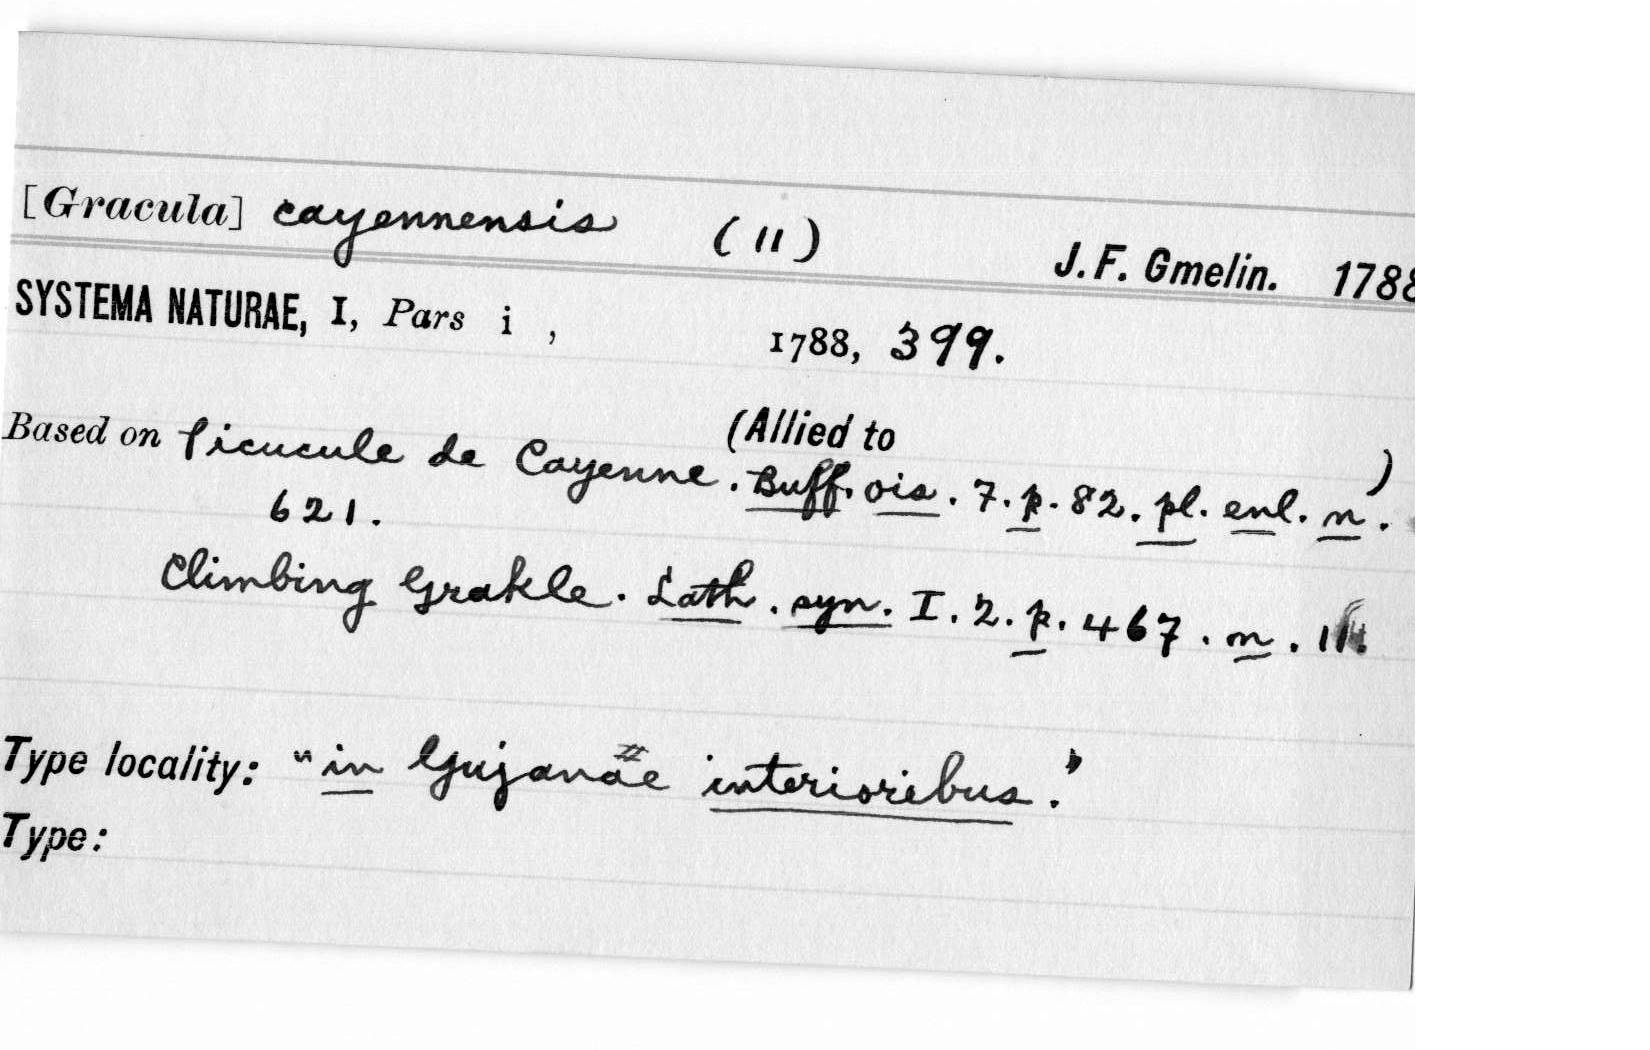 [Gracula] cayennensis (11) J. F. Gmelin. 1788
SYSTEMA NATURAE, I, Pars i , 1788, 399.
(Allied to )
Based on Picucule de Cayenne. Buff. ois. 7. p. 82. pl. enl. n.
621.
Climbing Grakle. Lath. syn. I. 2. p. 467. n. 11.
Type locality: "in Gujanae interioribus."
Type: